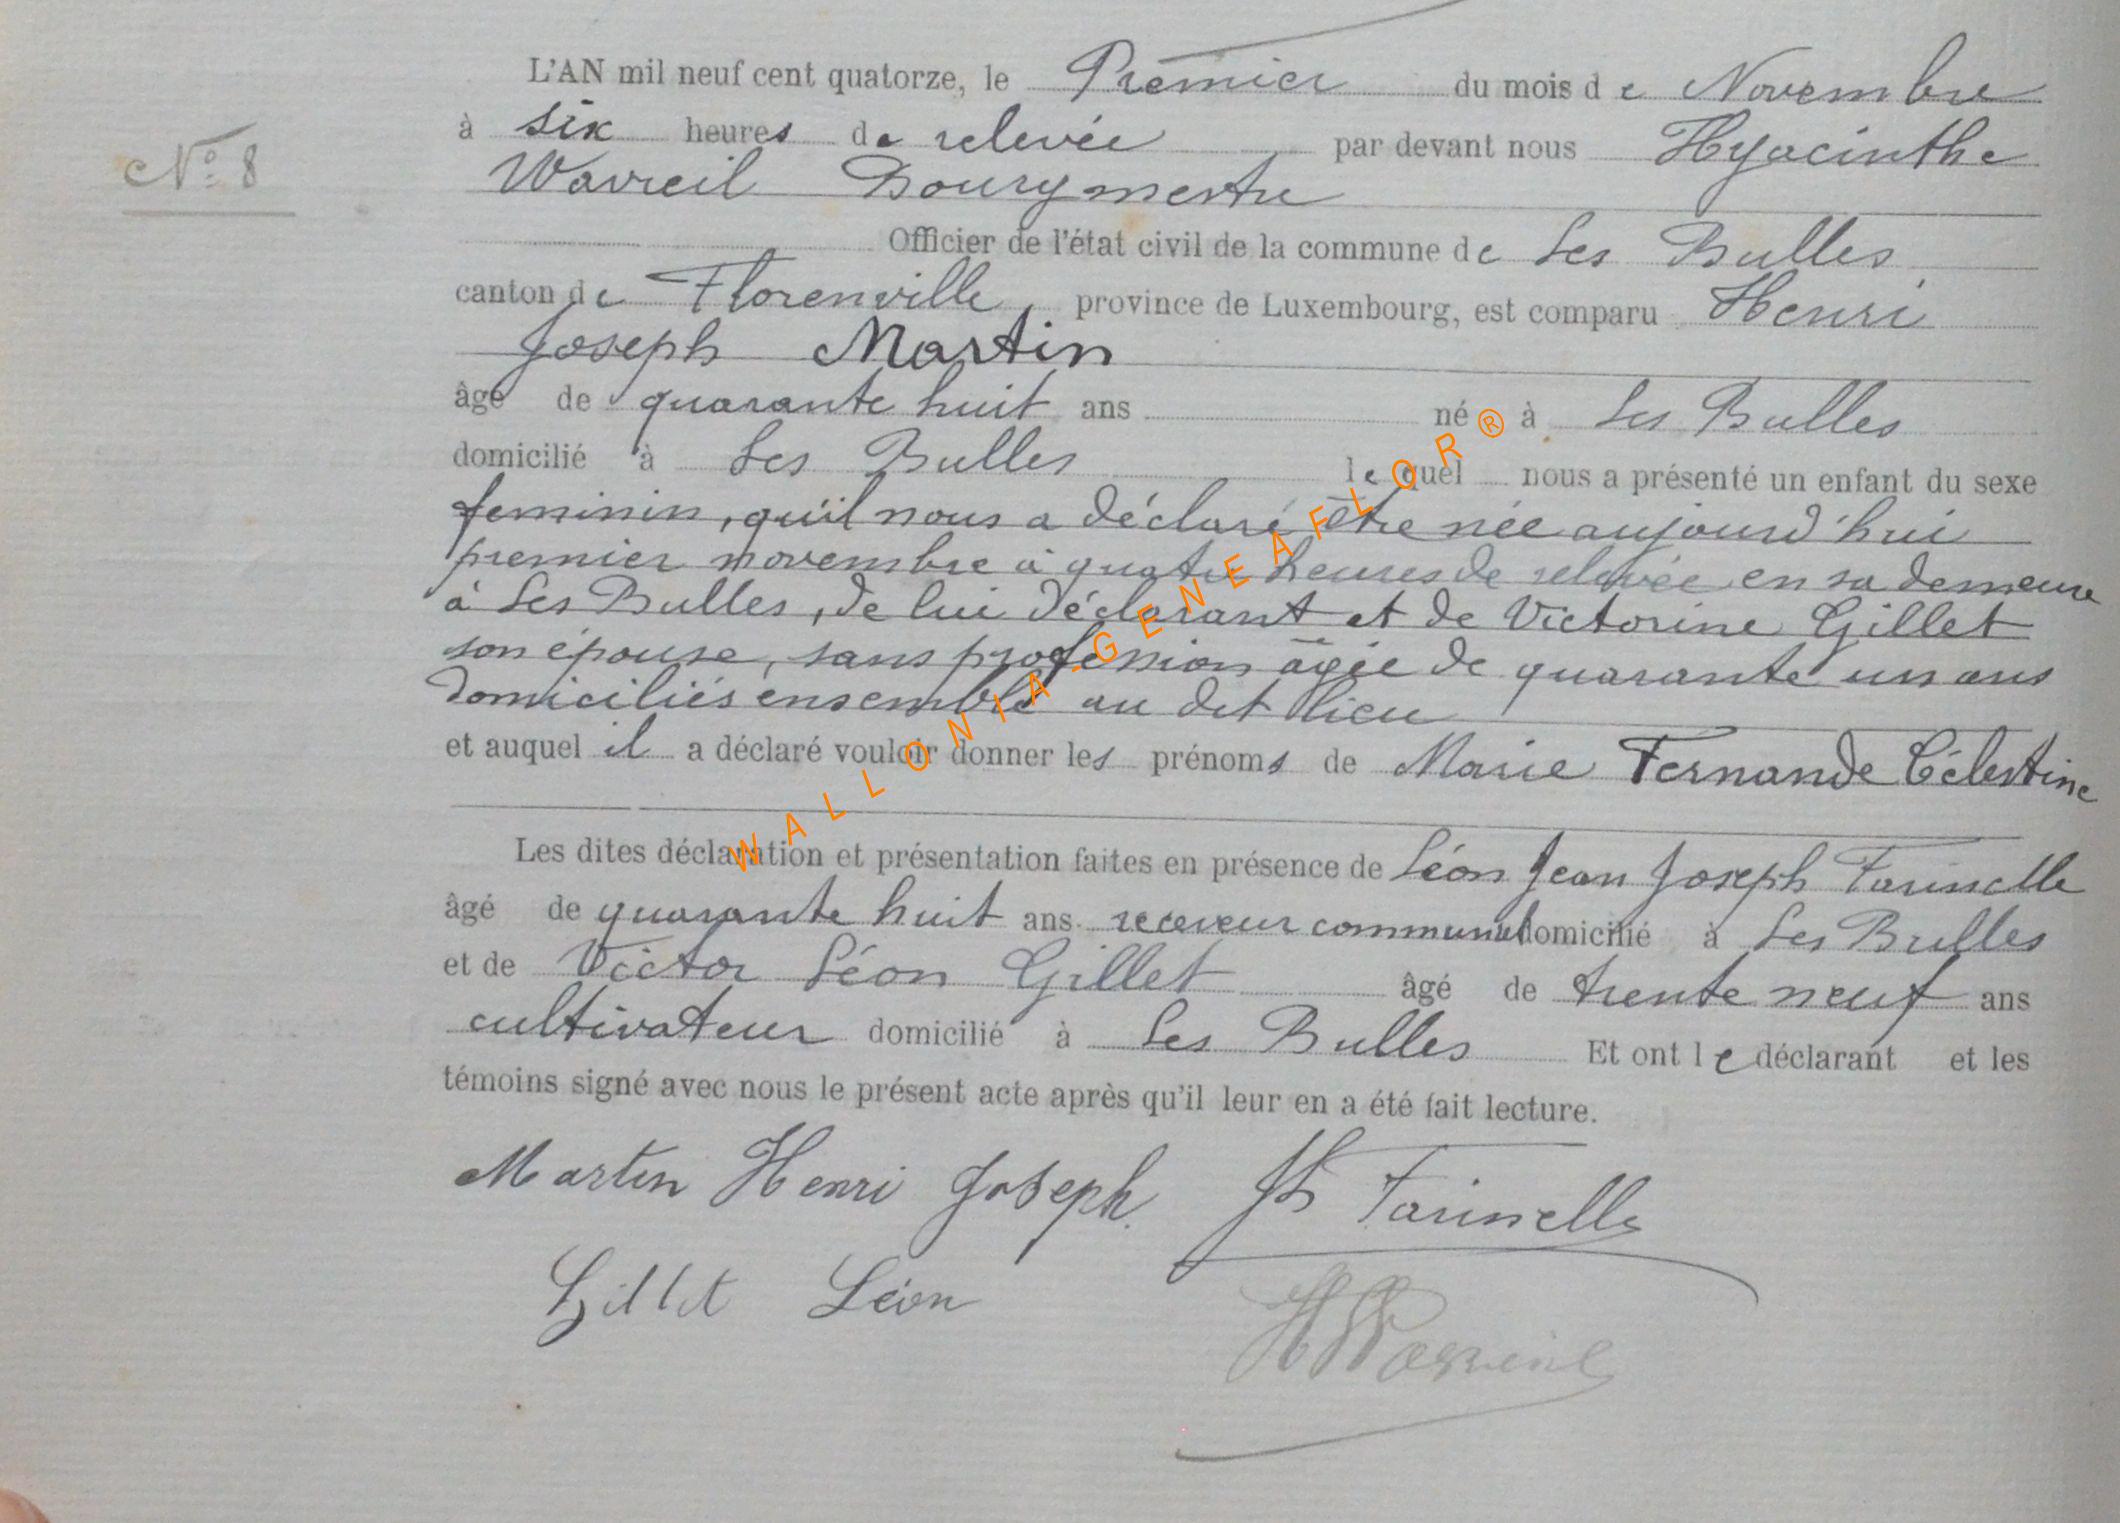 L'AN mil neuf cent quatorze, le Premier du mois de Novembre
N° 8
à six heures de relevée par devant nous Hyacinthe
Wavreil Bourgmestre
Officier de l'état civil de la commune de Les Bulles
canton de Florenville, province de Luxembourg, est comparu Henri
Joseph Martin
âgé de quarante huit ans né à Les Bulles
domicilié à Les Bulles lequel nous a présenté un enfant du sexe
feminin, qu'il nous a déclaré être née aujourd'hui
premier novembre à quatre heures de relevée en sa demeure
à Les Bulles, de lui déclarant et de Victorine Gillet
son épouse, sans profession âgée de quarante un ans
domiciliés ensemble au dit lieu
et auquel il a déclaré vouloir donner les prénoms de Marie Fernande Célestine
Les dites déclaration et présentation faites en présence de Léon Jean Joseph Farinelle
âgé de quarante huit ans receveur communal domicilié à Les Bulles
et de Victor Léon Gillet âgé de trente neuf ans
cultivateur domicilié à Les Bulles Et ont le déclarant et les
témoins signé avec nous le présent acte après qu'il leur en a été fait lecture.
Martin Henri Joseph. Farinelle
Gillet Léon
WALLONIA-GENEAFLOR®